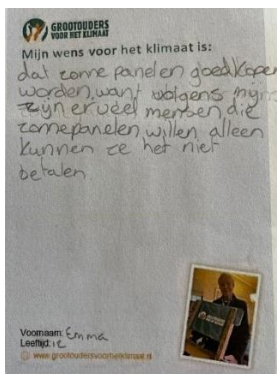 GROOTOUDERS
VOOR HET KLIMAAT
Mijn wens voor het klimaat is:
dat zonne panelen goedkoper
worden, want volgens mijn
zijn er veel mensen die
zonnepanelen willen alleen
kunnen ze het niet
betalen.
Voornaam: Emma
Leeftijd: 12
www.grootoudersvoorhetklimaat.nl